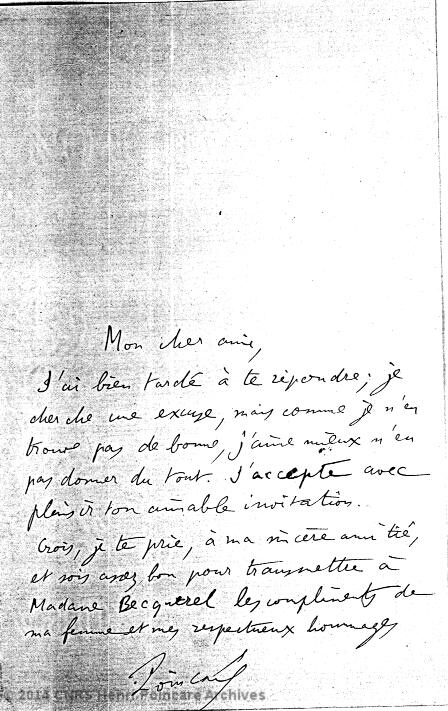 Mon cher ami,
J'ai bien tardé à te répondre; je
cherche une excuse, mais comme je n'en
trouve pas de bonne, j'aime mieux n'en
pas donner du tout. J'accepte avec
plaisir ton aimable invitation.
Crois, je te prie, à ma sincère amitié,
et sois assez bon pour transmettre à
Madame Becquerel les compliments de
ma femme et mes respectueux hommages
Poincaré
2014 CNRS Henri Poincaré Archives